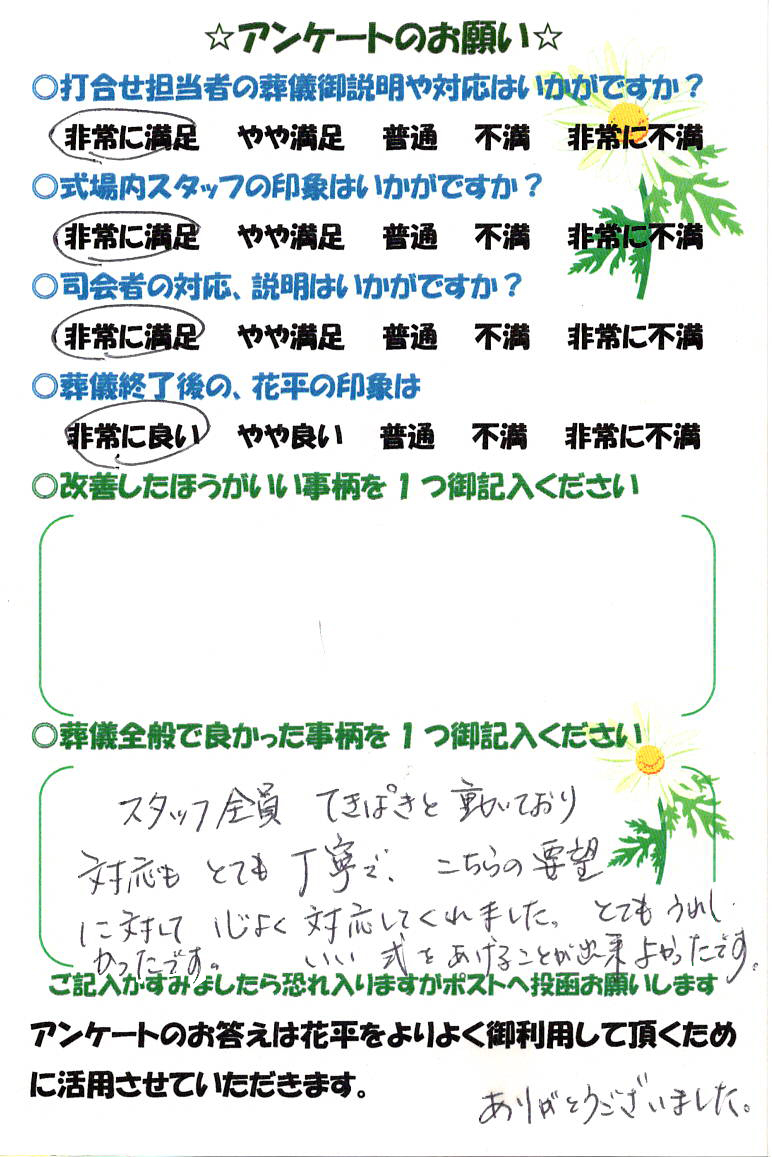 ☆アンケートのお願い☆
○打合せ担当者の葬儀御説明や対応はいかがですか？
非常に満足 やや満足 普通 不満 非常に不満
○式場内スタッフの印象はいかがですか？
非常に満足 やや満足 普通 不満 非常に不満
○司会者の対応、説明はいかがですか？
非常に満足 やや満足 普通 不満 非常に不満
○葬儀終了後の、花平の印象は
非常に良い やや良い 普通 不満 非常に不満
○改善したほうがいい事柄を１つ御記入ください
○葬儀全般で良かった事柄を１つ御記入ください
スタッフ全員 てきぱきと動いており
対応も とても 丁寧で、こちらの要望
に対して 心よく 対応してくれました。とても うれし
かったです。 いい 式をあげることが出来よかったです。
ご記入がすみましたら恐れ入りますがポストへ投函お願いします
アンケートのお答えは花平をよりよく御利用して頂くため
に活用させていただきます。
ありがとうございました。